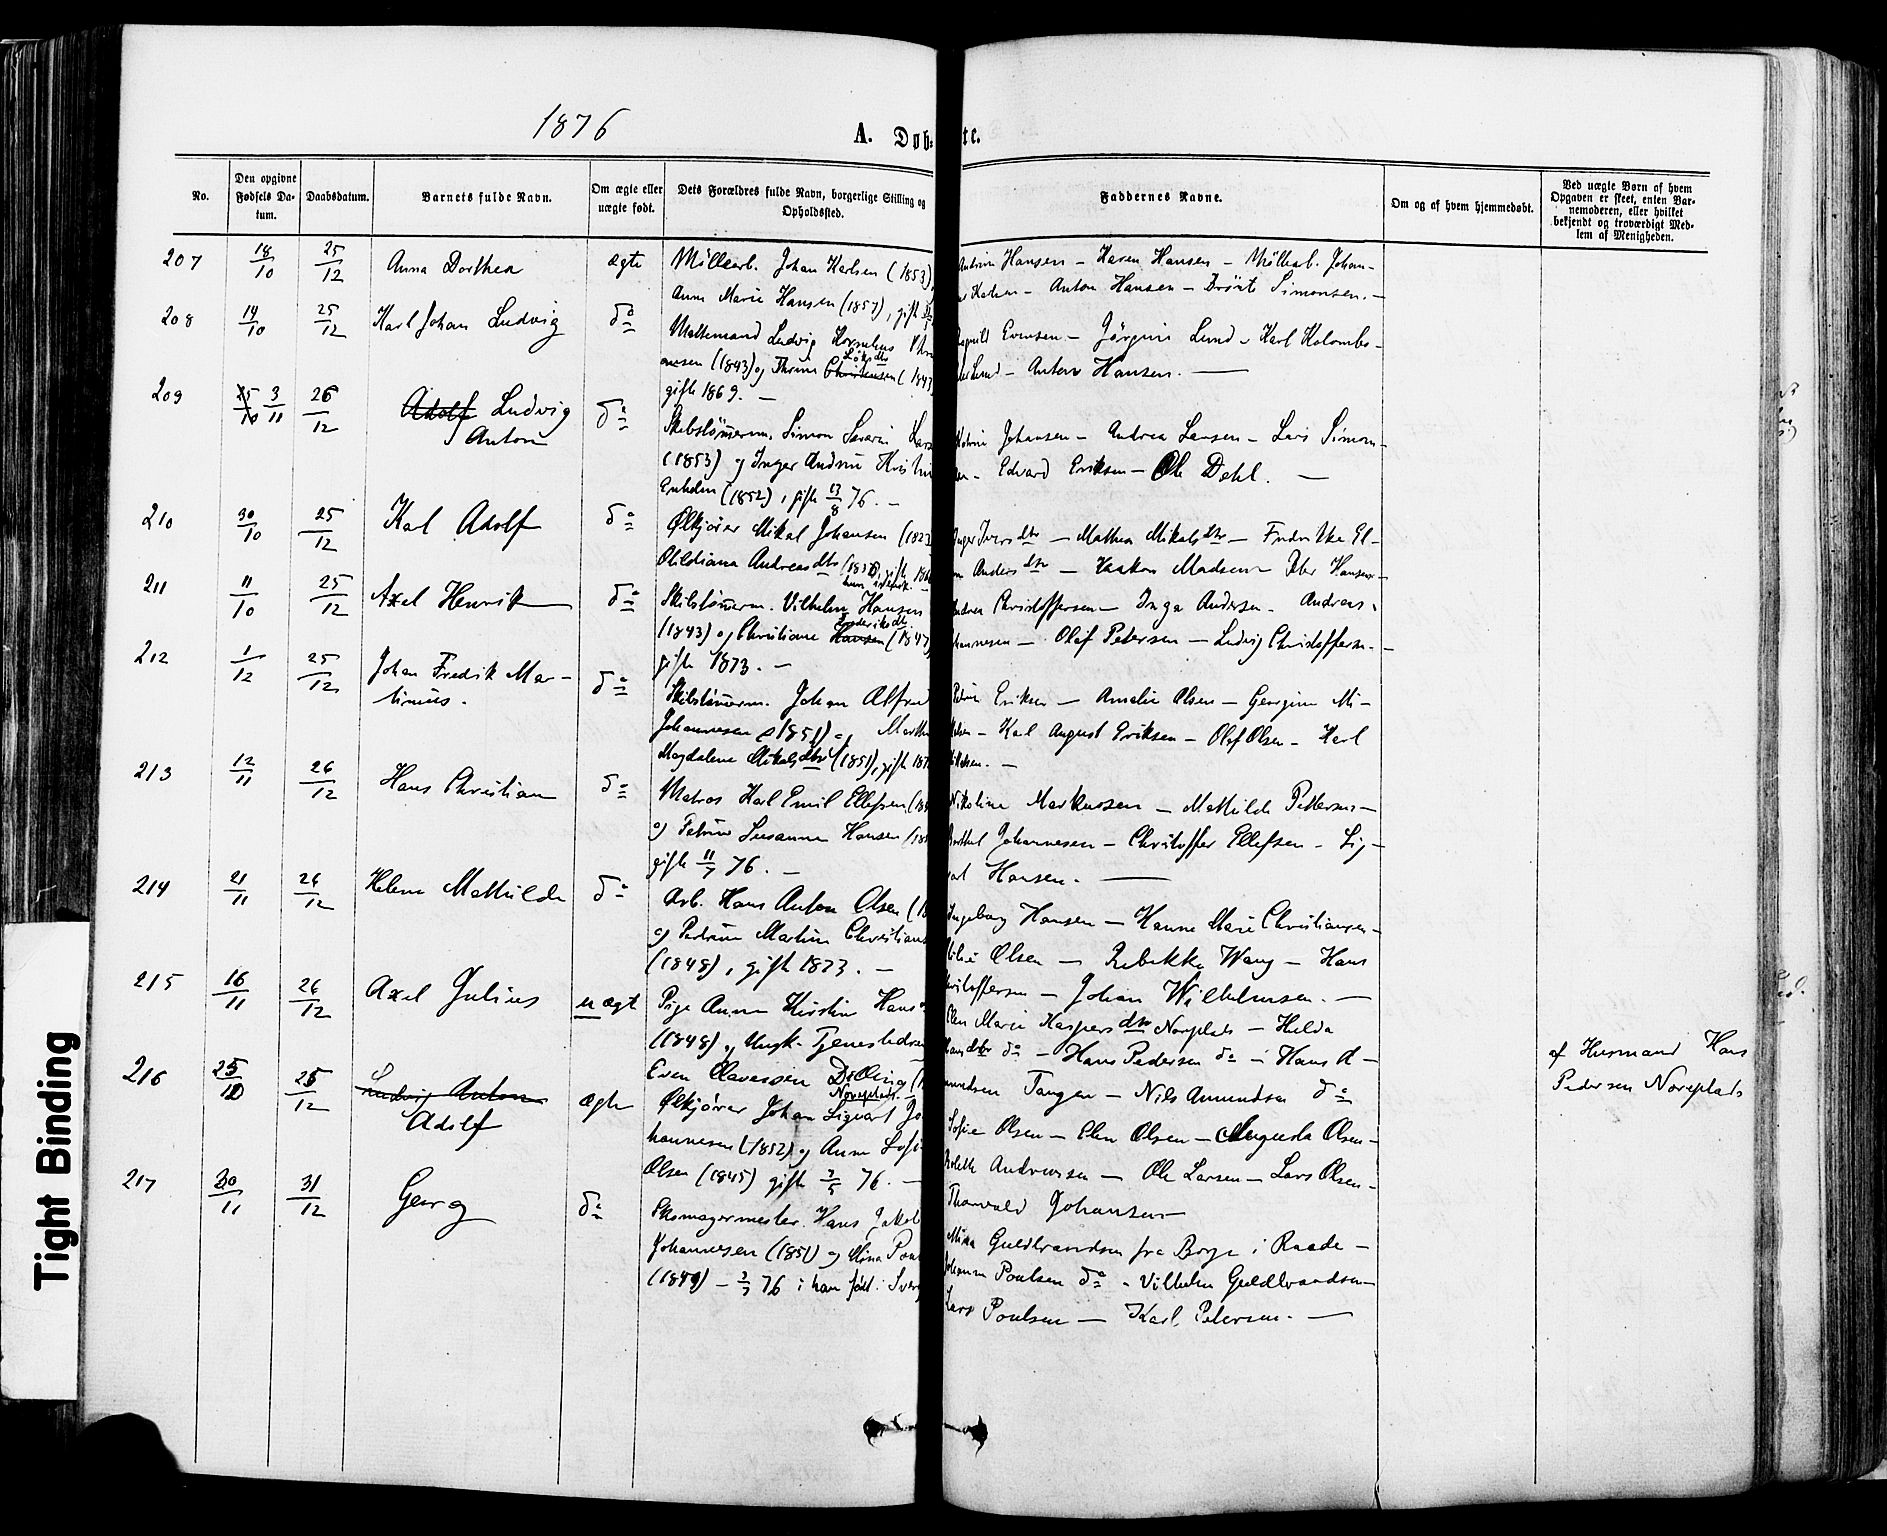 1876
A. Døb-
te.
No.
Den opgivne Fødsels Da-tum.
Daabsdatum.
Barnets fulde Navn.
Om ægte eller uægte født.
Dets Forældres fulde Navn, borgerlige Stilling og Opholdssted.
Faddernes Navne.
Om og af hvem hjemmedøbt.
Ved uægte Børn af hvem Opgaven er skeet, enten Bar-nemoderen, eller hvilket bekjendt og troværdigt Med-lem af Menigheden.
207 18/10 25/12 Anna Dorthea ægte
Møllearb. Johan Karlsen (1853)
Anne Marie Hansen (1857), gift
Hansen – Karen Hansen – Møllearb. Johan-
Karlsen – Anton Hansen – Brörit Simonsen. –
208 14/10 25/12 Karl Johan Ludvig do
Ludvig Kornelius
(1843) og Thrine Christensen (1843
gift 1869. –
Evensen – Jörgine Lund – Karl Kolombo-
Lund – Anton Hansen. –
209 25/10 3/11 26/12 Adolf Ludvig
Anton
do
Skibstömerm. Simon Severin Lars
(1853) og Inger Andrine Kristin
(1852), gift 13/8 76. –
Johansen – Andrea Larsen – Lars Simon-
– Edvard Eriksen – Ole Dahl. –
210 30/10 25/12 Karl Adolf do
Ølkjører Mikal Johansen (1823
Andreasdtr
Inger Iversdtr – Mathea Mikalsdtr – Fredrikke El-
Andersdtr – Haakon Madsen – Peter Hansen –
211 11/10 25/12 Axel Henrik do
Skibstömerm. Vilhelm Hansen
(1843) og Christiane Hansen (1847)
Frederiksdtr
gift 1873. –
Andrea Christoffersen – Inga Andersen – Andreas
– Olaf Petersen – Ludvig Christoffersen. –
212 1/12 25/12 Johan Fredrik Mar-
tinius.
do
Skibstömerm. Johan Alfred
Johannesen (1851) og Marthe
Magdalene Mikalsdtr (1851), gift 187
Eriksen – Amalie Olsen – Georgine Mi-
– Karl August Eriksen – Olaf Olsen – Karl
213 12/11 26/12 Hans Christian do
Matros Karl Emil Ellefsen
og Petrine Susanne Hansen
gift 11/7 76. –
Nikoline Markussen – Mathilde Pettersen –
Johannesen – Christoffer Ellefsen – Sig-
Hansen. –
214 21/11 26/12 Helene Mathilde do
Arb. Hans Anton Olsen
og Martine Christians
(1848), gift 1873. –
Ingeborg Hansen – Hanne Marie Christiansen –
Olsen – Rebekka Wang – Hans
– Johan Wilhelmsen. –
215 16/11 26/12 Axel Julius uægt
Pige Anne Kirstine Hans
(1848) og Ungk. Tjenestedr
Even Olavessen
Noreplads –
Maria Kaspersdtr Noreplads – Hulda
do – Hans Pedersen do – Hans A-
mundsen Tangen – Nils Amundsen do
af Husmand Hans
Pedersen Noreplads
216 25/10 25/12 Ludvig Anton
Adolf
ægte
Ølkjører Johan Sigvart Jo-
hannesen (1852) og Anne Sofi
Olsen (1845) gift 2/5 76. –
Sofie Olsen – Elen Olsen – Augusta Olsen –
Andreassen – Ole Larsen – Lars Olsen –
Thorvald Johansen –
217 30/11 31/12 Georg do
Skomagermester. Hans Jakob
Johannesen (1851) og Mina Poul
(1849) – 2/7 76 : han født. Sver
Mina Guldbrandsen fra Borge i Raade –
Poulsen do – Vilhelm Guldbrandsen –
Lars Poulsen – Karl Petersen. –
Tight Binding